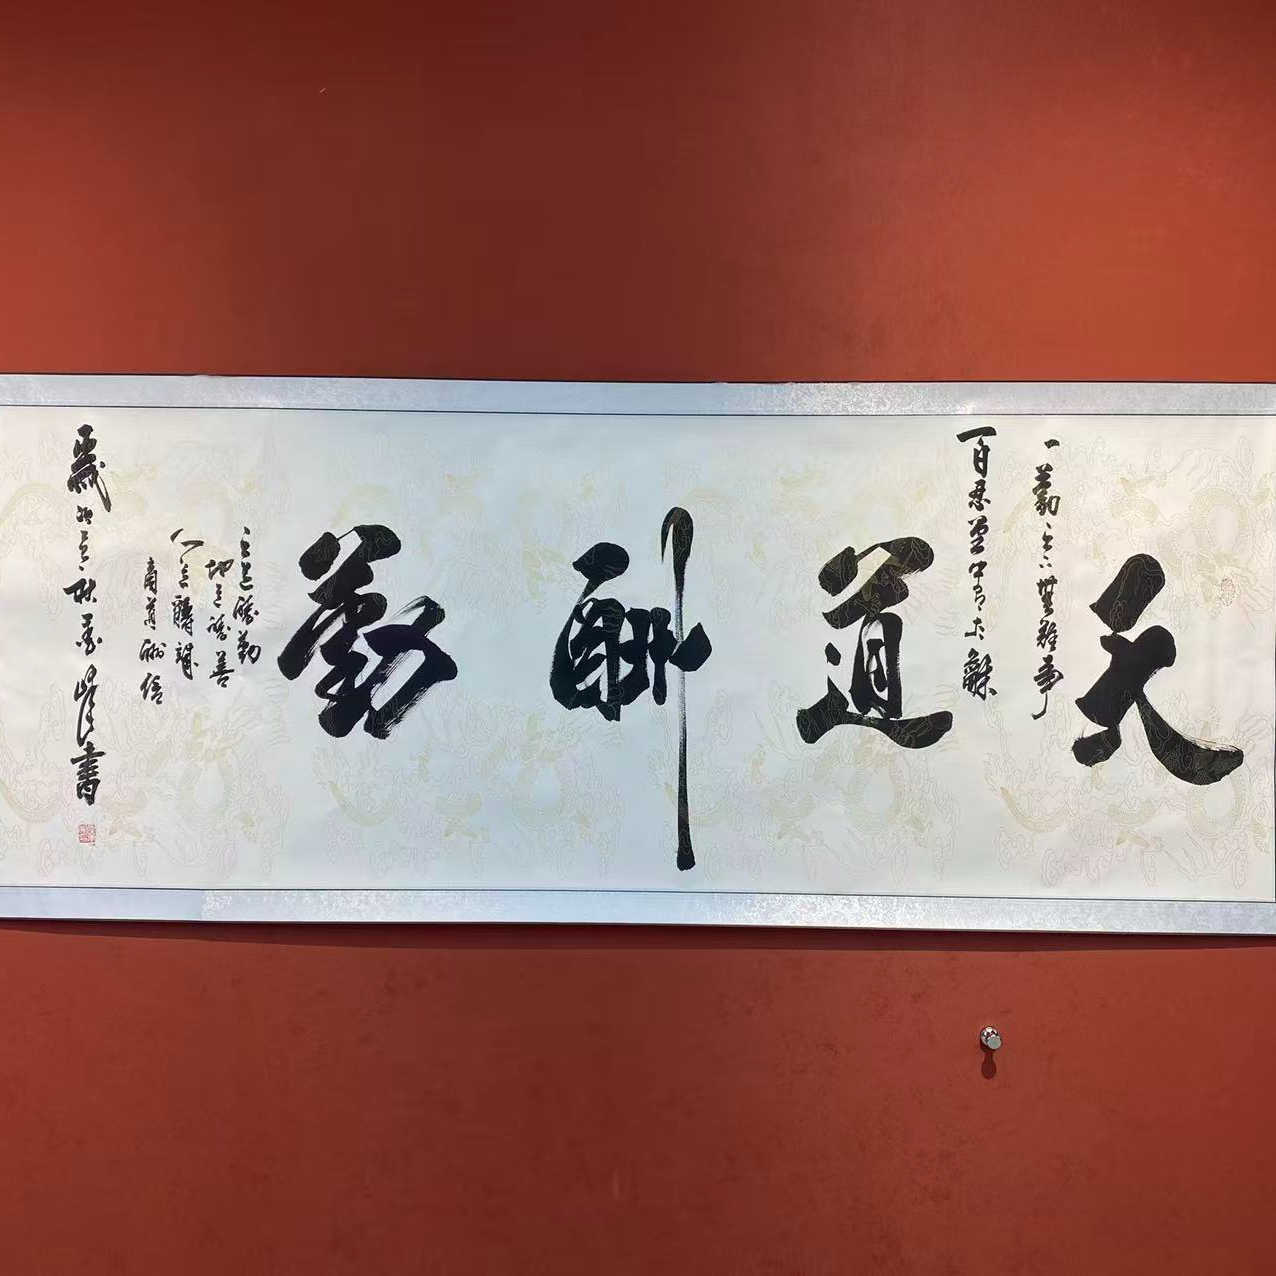 天道酬勤
一勤天下無難事
百忍堂中有太龢
天道酬勤
地道酬善
人道酬誠
商道酬信
峰書